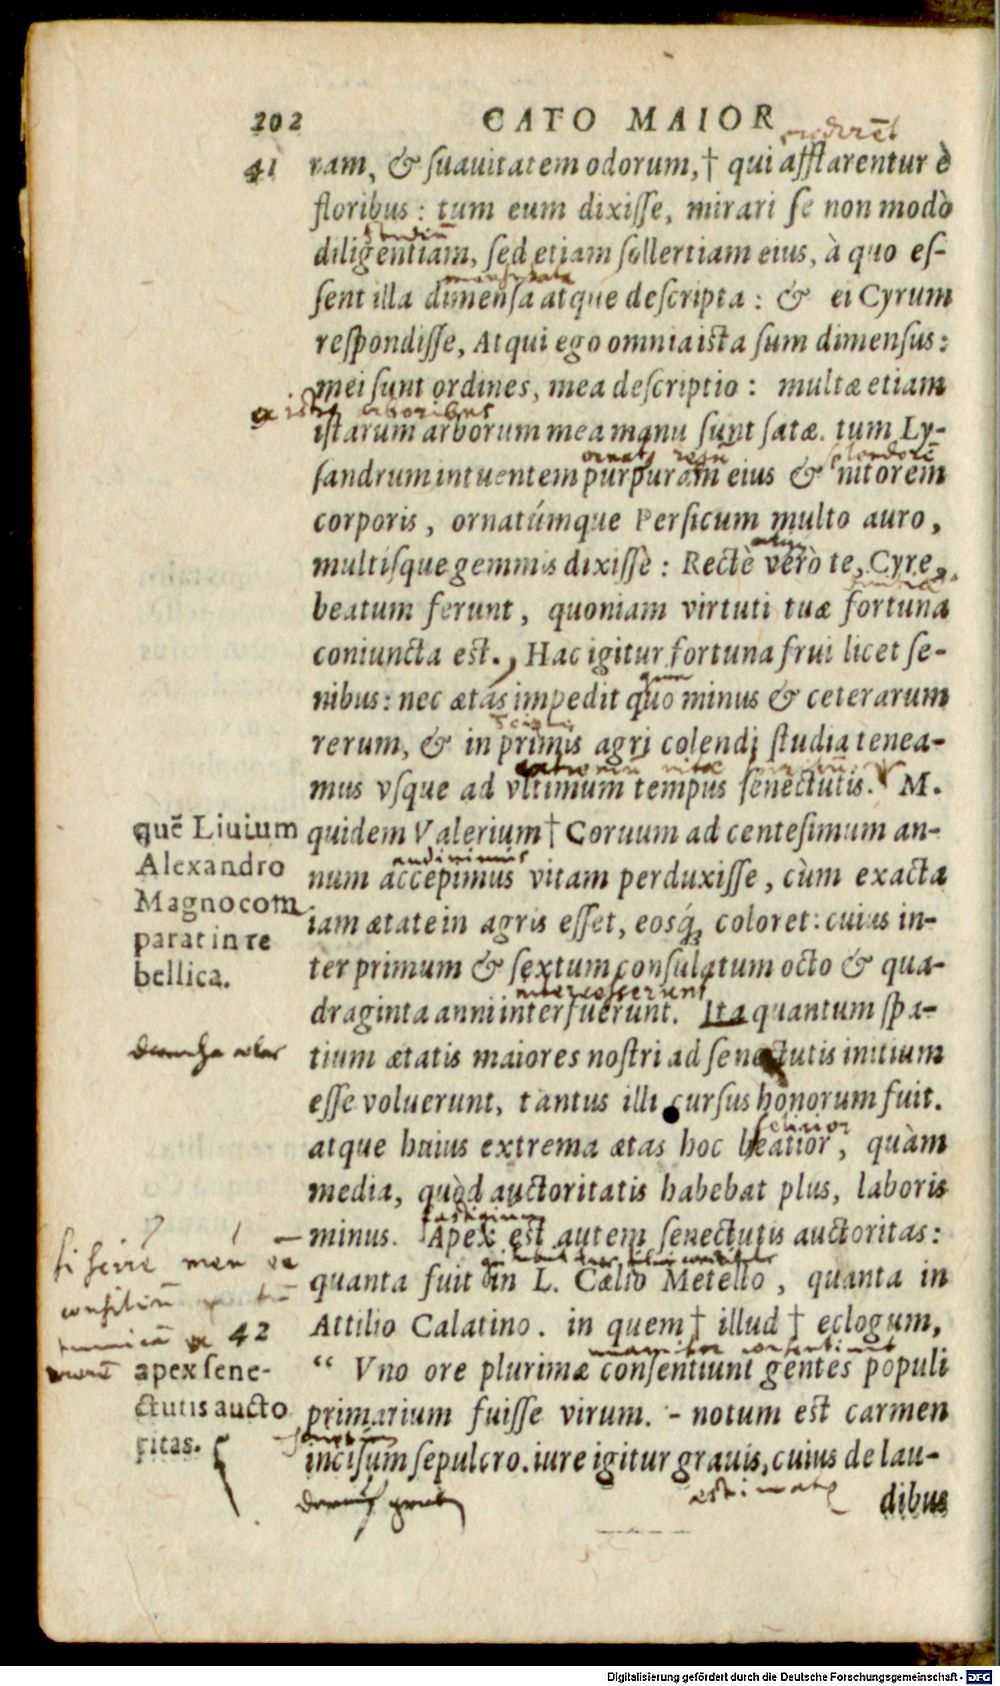 202 CATO MAIOR
41 ram, & ſuauitatem odorum, † qui afflarentur è
floribus: tum eum dixiſſe, mirari ſe non modò
diligentiam, ſed etiam ſollertiam eius, à quo eſ-
ſent illa dimenſa atque deſcripta: & ei Cyrum
reſpondiſſe, Atqui ego omnia iſta ſum dimenſus:
mei ſunt ordines, mea deſcriptio: multæ etiam
arboribus
iſtarum arborum mea manu ſunt ſatæ. tum Ly-
ſandrum intuentem purpuram eius & nitorem
corporis, ornatúmque Perſicum multo auro,
multiſque gemmis dixiſſè: Rectè verò te, Cyre,
beatum ferunt, quoniam virtuti tuæ fortuna
coniuncta eſt. Hac igitur fortuna frui licet ſe-
nibus: nec ætas impedit quo minus & ceterarum
rerum, & in primis agri colendi ſtudia tenea-
mus vſque ad vltimum tempus ſenectutis. M.
quidem Valerium † Coruum ad centeſimum an-
audivimus
num accepimus vitam perduxiſſe, cùm exacta
iam ætate in agris eſſet, eosq́; coloret: cuius in-
ter primum & ſextum conſulatum octo & qua-
draginta anni interfuerunt. Ita quantum ſpa-
tium ætatis maiores noſtri ad ſenectutis initium
eſſe voluerunt, tantus illi curſus honorum fuit.
felicior
atque huius extrema ætas hoc beatior, quàm
media, quòd auctoritatis habebat plus, laboris
fastigium
minus. Apex eſt autem ſenectutis auctoritas:
quanta fuit in L. Cælio Metello, quanta in
Attilio Calatino. in quem † illud † eclogum,
“ Vno ore plurimæ conſentiunt gentes populi
primarium fuiſſe virum. - notum eſt carmen
inciſum ſepulcro. iure igitur grauis, cuius de lau-
dibus
quē Liuium
Alexandro
Magno com
parat in re
bellica.
42
apex ſene-
ctutis aucto
ritas.
Digitalisierung gefördert durch die Deutsche Forschungsgemeinschaft - DFG